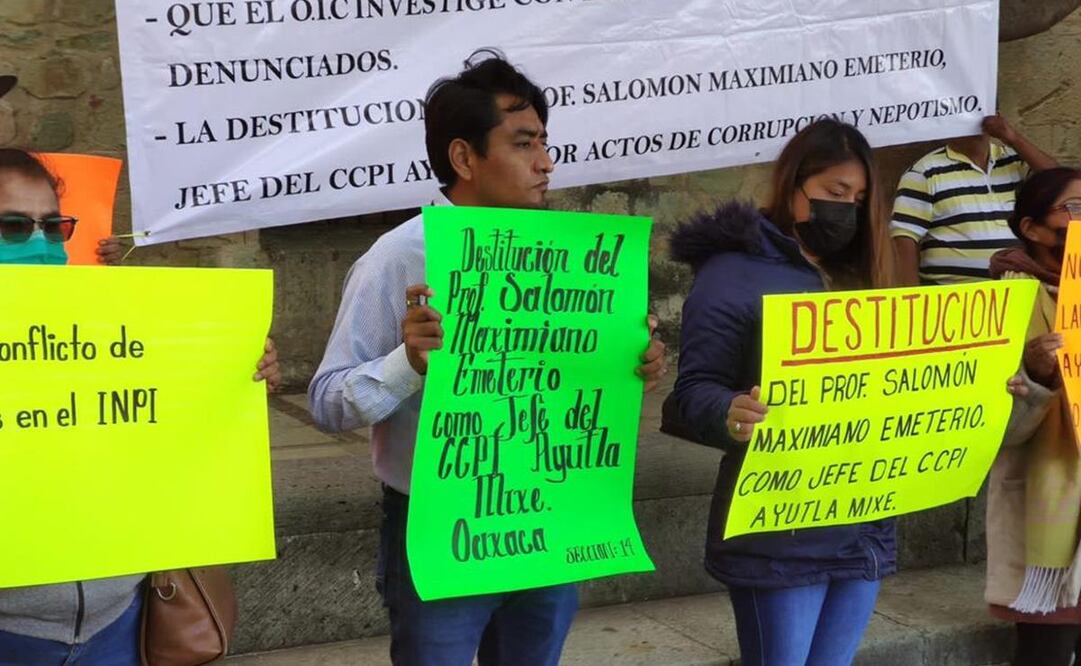 - QUE EL O.I.C INVESTIGE CON
DENUNCIADOS.
- LA DESTITUCION OF. SALOMON MAXIMIANO EMETERIO,
JEFE DEL CCPI AY OR ACTOS DE CORRUPCION Y NEPOTISMO.
onflicto de
s en el INPI
Destitución del
Prof. Salomón
Maximiano
Emeterio
como Jefe del
CCPI Ayutla
Mixe.
Oaxaca
SECCION: 14
DESTITUCION
DEL PROF. SALOMÓN
MAXIMIANO EMETERIO.
COMO JEFE DEL CCPI
AYUTLA MIXE.
NO
LA
AYU